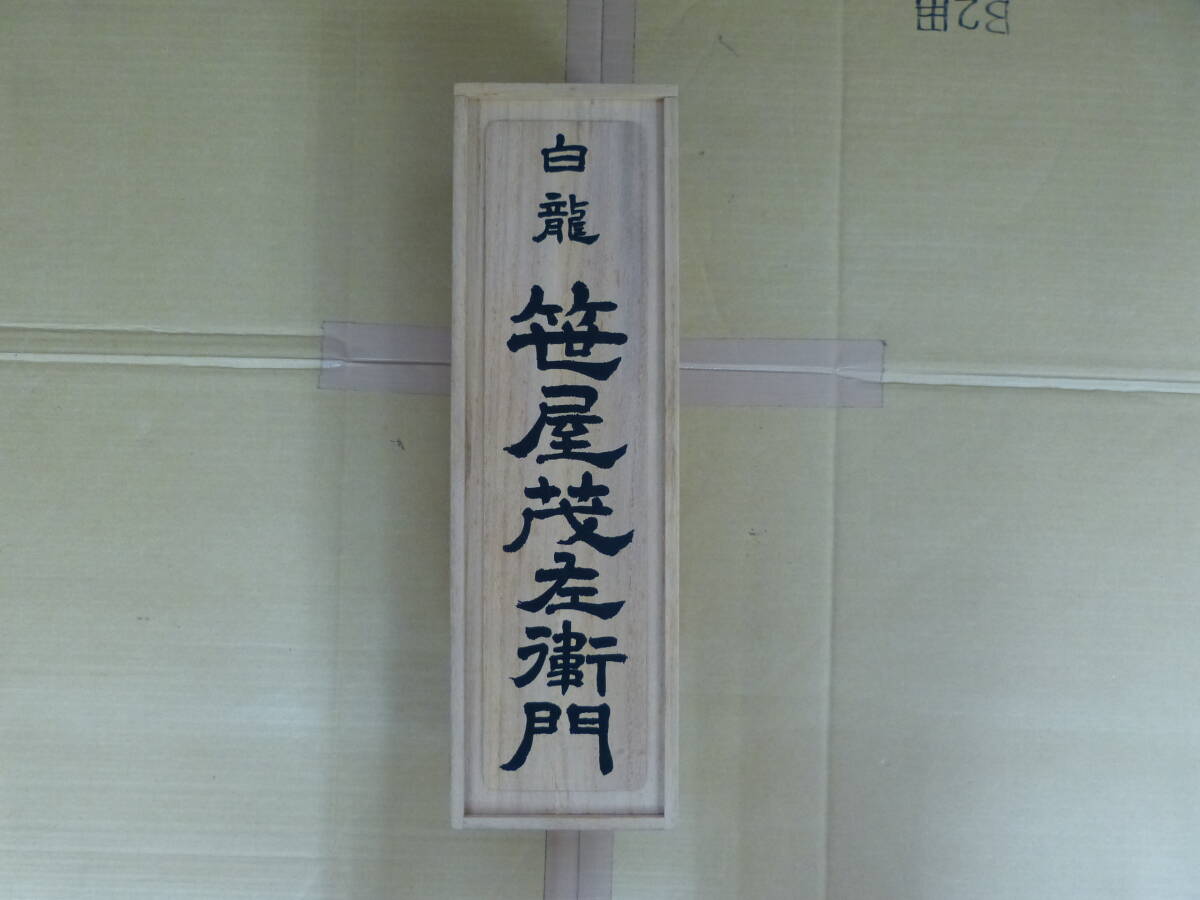 白龍
笹屋茂左衛門
B2用